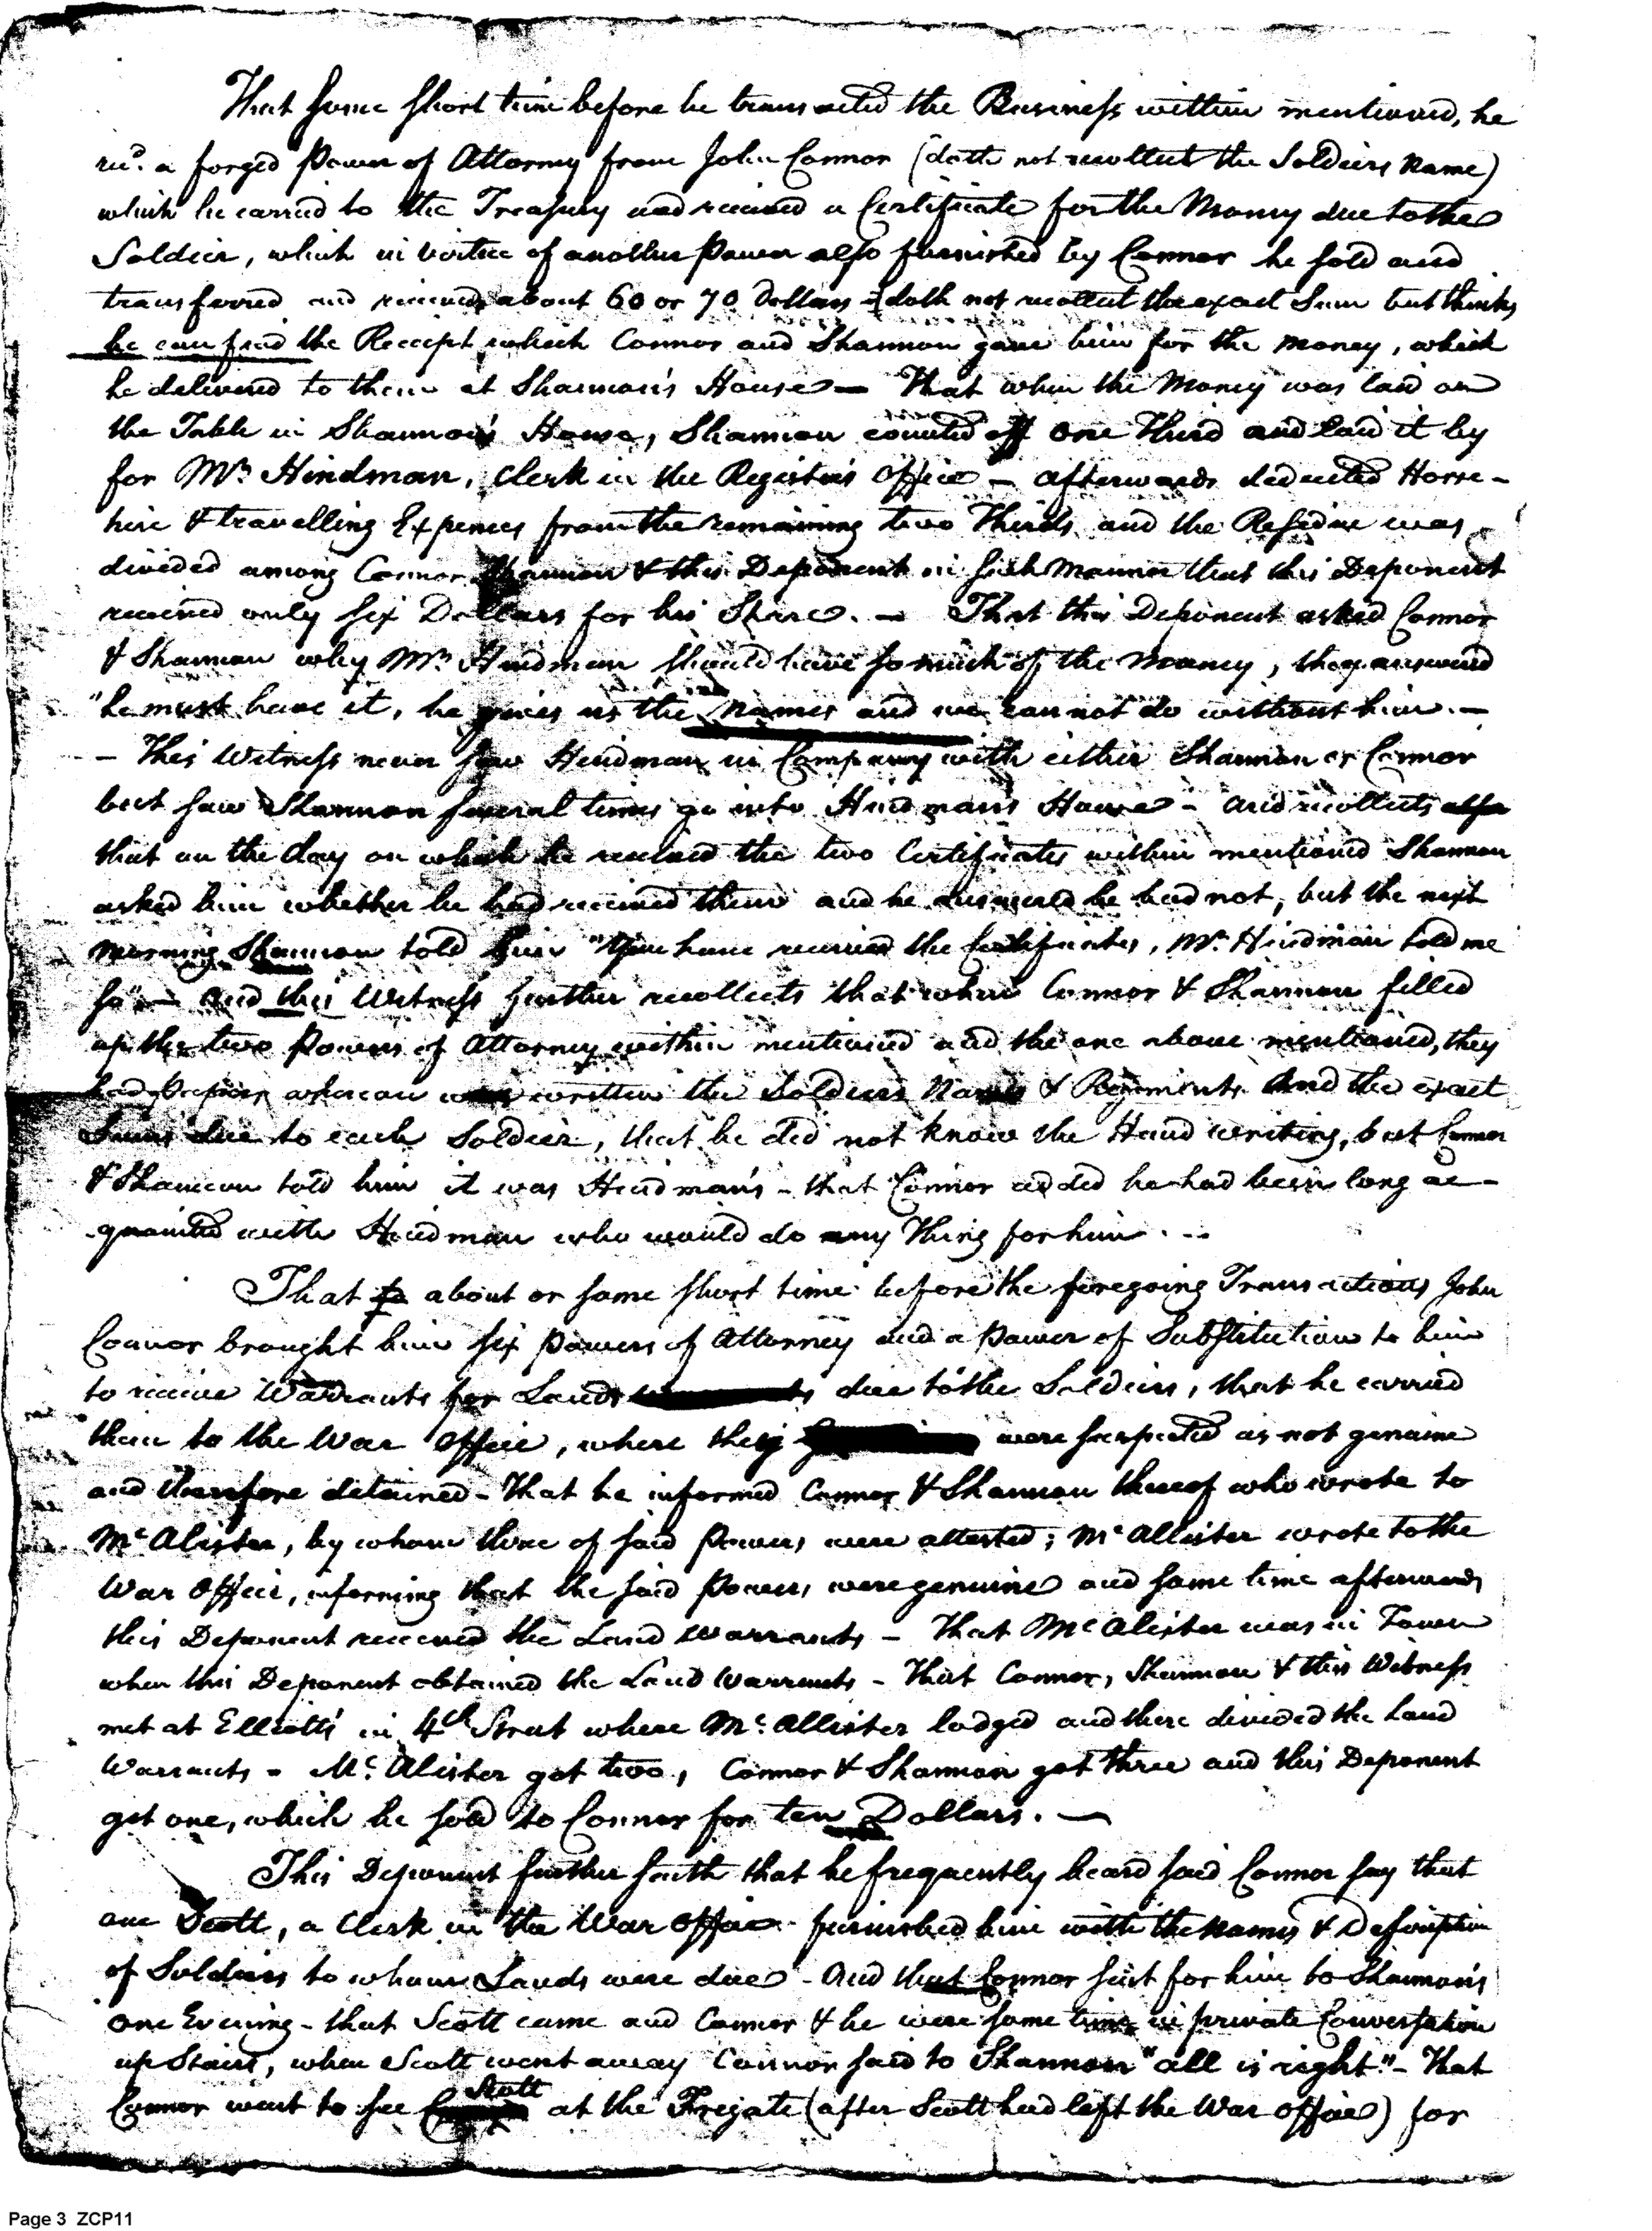 That some short time before he transacted the Business within mentioned, he
recd. a forged Power of Attorney from John Connor (doth not recollect the Soldiers Name)
which he carried to the Treasury and received a Certificate for the Money due to the
Soldier, which in virtue of another Power also furnished by Connor he sold and
transferred and received about 60 or 70 Dollars doth not recollect the exact Sum but thinks
he can find the Receipt which Connor and Shannon gave him for the money, which
he delivered to them at Shannon's House — That when the Money was laid on
the Table in Shannon's House, Shannon counted off one Third and laid it by
for Mr. Hindman, Clerk in the Register's Office — afterwards deducted Horse-
hire & travelling Expences from the remaining two Thirds and the Residue was
divided among Connor Shannon & this Deponent in such Manner that this Deponent
received only six Dollars for his Share. — That this Deponent asked Connor
& Shannon why Mr. Hindman should have so much of the Money, they answered
"he must have it, he gives us the names and we cannot do without him. —
— This Witness never saw Hindman in Company with either Shannon or Connor
but saw Shannon several times go into Hindman's House - and recollects also
that on the day on which he received the two Certificates within mentioned Shannon
asked him whether he had received them and he answered he had not, but the next
morning Shannon told him "You have received the Certificates, Mr. Hindman told me
so" — and this Witness further recollects that when Connor & Shannon filled
up the two Powers of Attorney within mentioned and the one above mentioned, they
had Papers whereon was written the Soldiers Names & Regiments And the exact
Sums due to each Soldier, that he did not know the Hand writing, but Connor
& Shannon told him it was Hindman's - that Connor added he had been long ac-
quainted with Hindman who would do any Thing for him. --
That about or some short time before the foregoing Transactions John
Connor brought him six Powers of Attorney and a Power of Substitution to him
to receive Warrants for Lands due to the Soldiers, that he carried
them to the War Office, where they were suspected as not genuine
and therefore detained - That he informed Connor & Shannon thereof who wrote to
McAlister, by whom three of said Powers were attested; McAllister wrote to the
War Office, informing that the said Powers were genuine and some time afterwards
this Deponent received the Land Warrants — That McAlister was in Town
when this Deponent obtained the Land Warrants - That Connor, Shannon & this Witness
met at Elliott's in 4th Street where McAllister lodged and there divided the Land
Warrants - McAlister got two, Connor & Shannon got three and this Deponent
got one, which he sold to Connor for ten Dollars. —
This Deponent further saith that he frequently heard said Connor say that
one Scott, a Clerk in the War Office furnished him with the names & Description
of Soldiers to whom Lands were due - And that Connor sent for him to Shannon's
one Evening - that Scott came and Connor & he were some time in private Conversation
up Stairs, when Scott went away Connor said to Shannon "all is right" - That
Connor went to see Scott at the Fregate (after Scott had left the War Office) for
Page 3 ZCP11